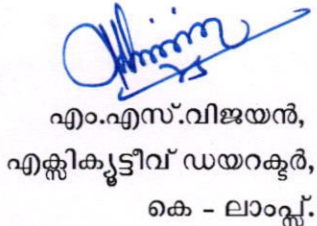 എം.എസ്.വിജയൻ,
എക്സിക്യൂട്ടീവ് ഡയറക്ടർ,
കെ - ലാംപ്സ്.